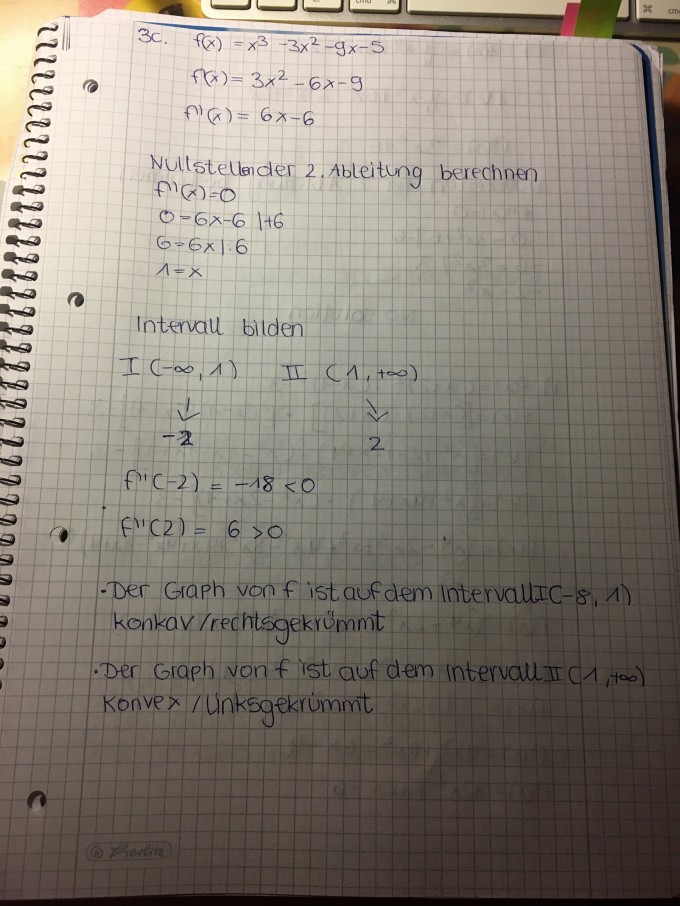 3c. f(x) = x³ -3x² -9x-5
f'(x) = 3x² -6x-9
f''(x) = 6x-6
Nullstellen der 2. Ableitung berechnen
f''(x)=0
0=6x-6 |+6
6=6x|:6
1=x
Intervall bilden
I (-∞, 1) II (1, +∞)
-2 2
f''(-2) = -18 < 0
f''(2) = 6 > 0
• Der Graph von f ist auf dem Intervall I (-8, 1)
konkav / rechtsgekrümmt
• Der Graph von f ist auf dem Intervall II (1, +∞)
Konvex / linksgekrümmt